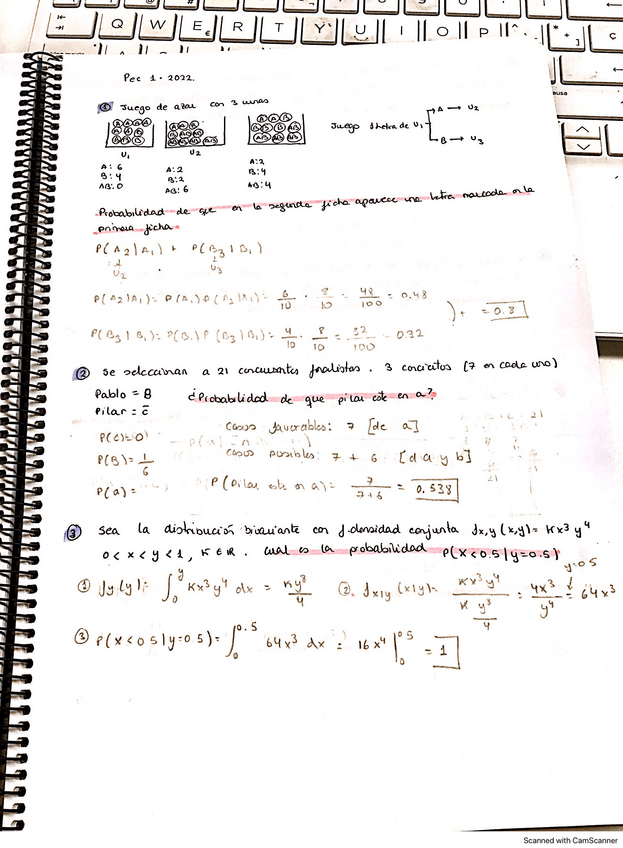 Q W E R T Y U I O P
€
Pec 1 - 2022.
① Juego de azar con 3 urnas
U₁ U₂
A: 6
B: 4
AB: 0
A: 2
B: 2
AB: 6
A: 2
B: 4
AB: 4
Juego 1 letra de U₁
A → U₂
B → U₃
Probabilidad de que en la segunda ficha aparece una letra marcada en la
primera ficha
P(A₂|A₁) + P(B₃|B₁)
U₂ U₃
P(A₂|A₁) = P(A₁) P(A₂|A₁) = 6/10 · 8/10 = 48/100 = 0.48
) + = 0.8
P(B₃|B₁) = P(B₁) P(B₃|B₁) = 4/10 · 8/10 = 32/100 = 0.32
② Se seleccionan a 21 concursantes finalistas. 3 conciertos (7 en cada uno)
Pablo = B ¿Probabilidad de que pilar este en a?
Pilar = c̄
P(c)=0 casos favorables: 7 [de a]
P(B) = 1/6 casos posibles: 7 + 6 [d a y b]
P(a) = P(pilar este en a) = 7/7+6 = 0.538
③ Sea la distribución bivariante con f.densidad conjunta fx,y(x,y) = Kx³y⁴
0 < x < y < 1, K ∈ R. Cual es la probabilidad P(X<0.5|y=0.5)
① fy(y) = ∫₀ʸ Kx³y⁴ dx = Ky⁸/4 ② fx|y(x|y) = Kx³y⁴ / K y⁸/4 = 4x³/y⁴ = 64x³
y=0.5
③ P(X<0.5|y=0.5) = ∫₀^0.5 64x³ dx = 16x⁴ |₀^0.5 = 1
Scanned with CamScanner